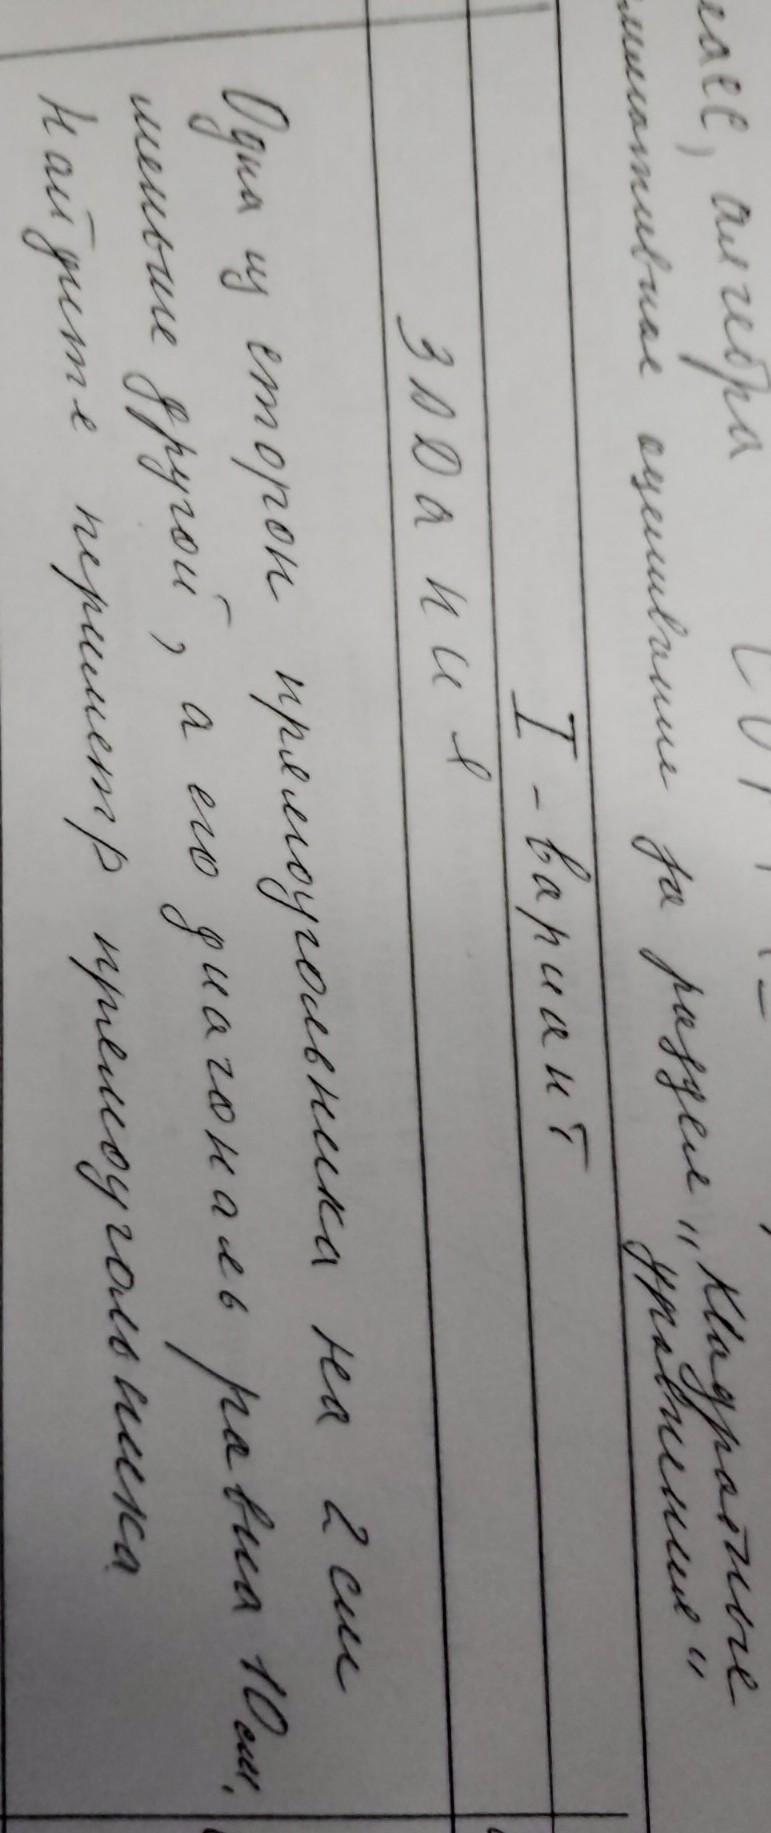 алгебра
оценивание за раздел „Квадратные
уравнения"
I - вариант
Задания
Одна из сторон прямоугольника на 2 см
меньше другой, а его диагональ равна 10 см.
Найдите периметр прямоугольника